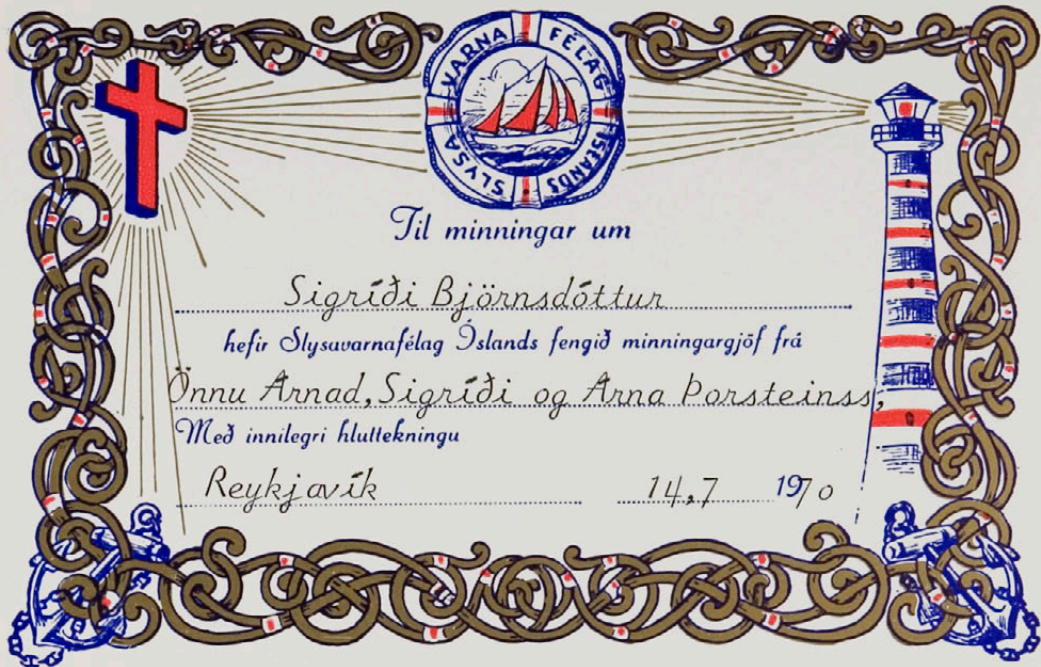 SLYSA VARNA FÉLAG ÍSLANDS
Til minningar um
Sigríði Björnsdóttur
hefir Slysavarnafélag Íslands fengið minningargjöf frá
Önnu Árnad, Sigríði og Árna Þorsteinss,
Með innilegri hluttekningu
Reykjavík 14,7 1970